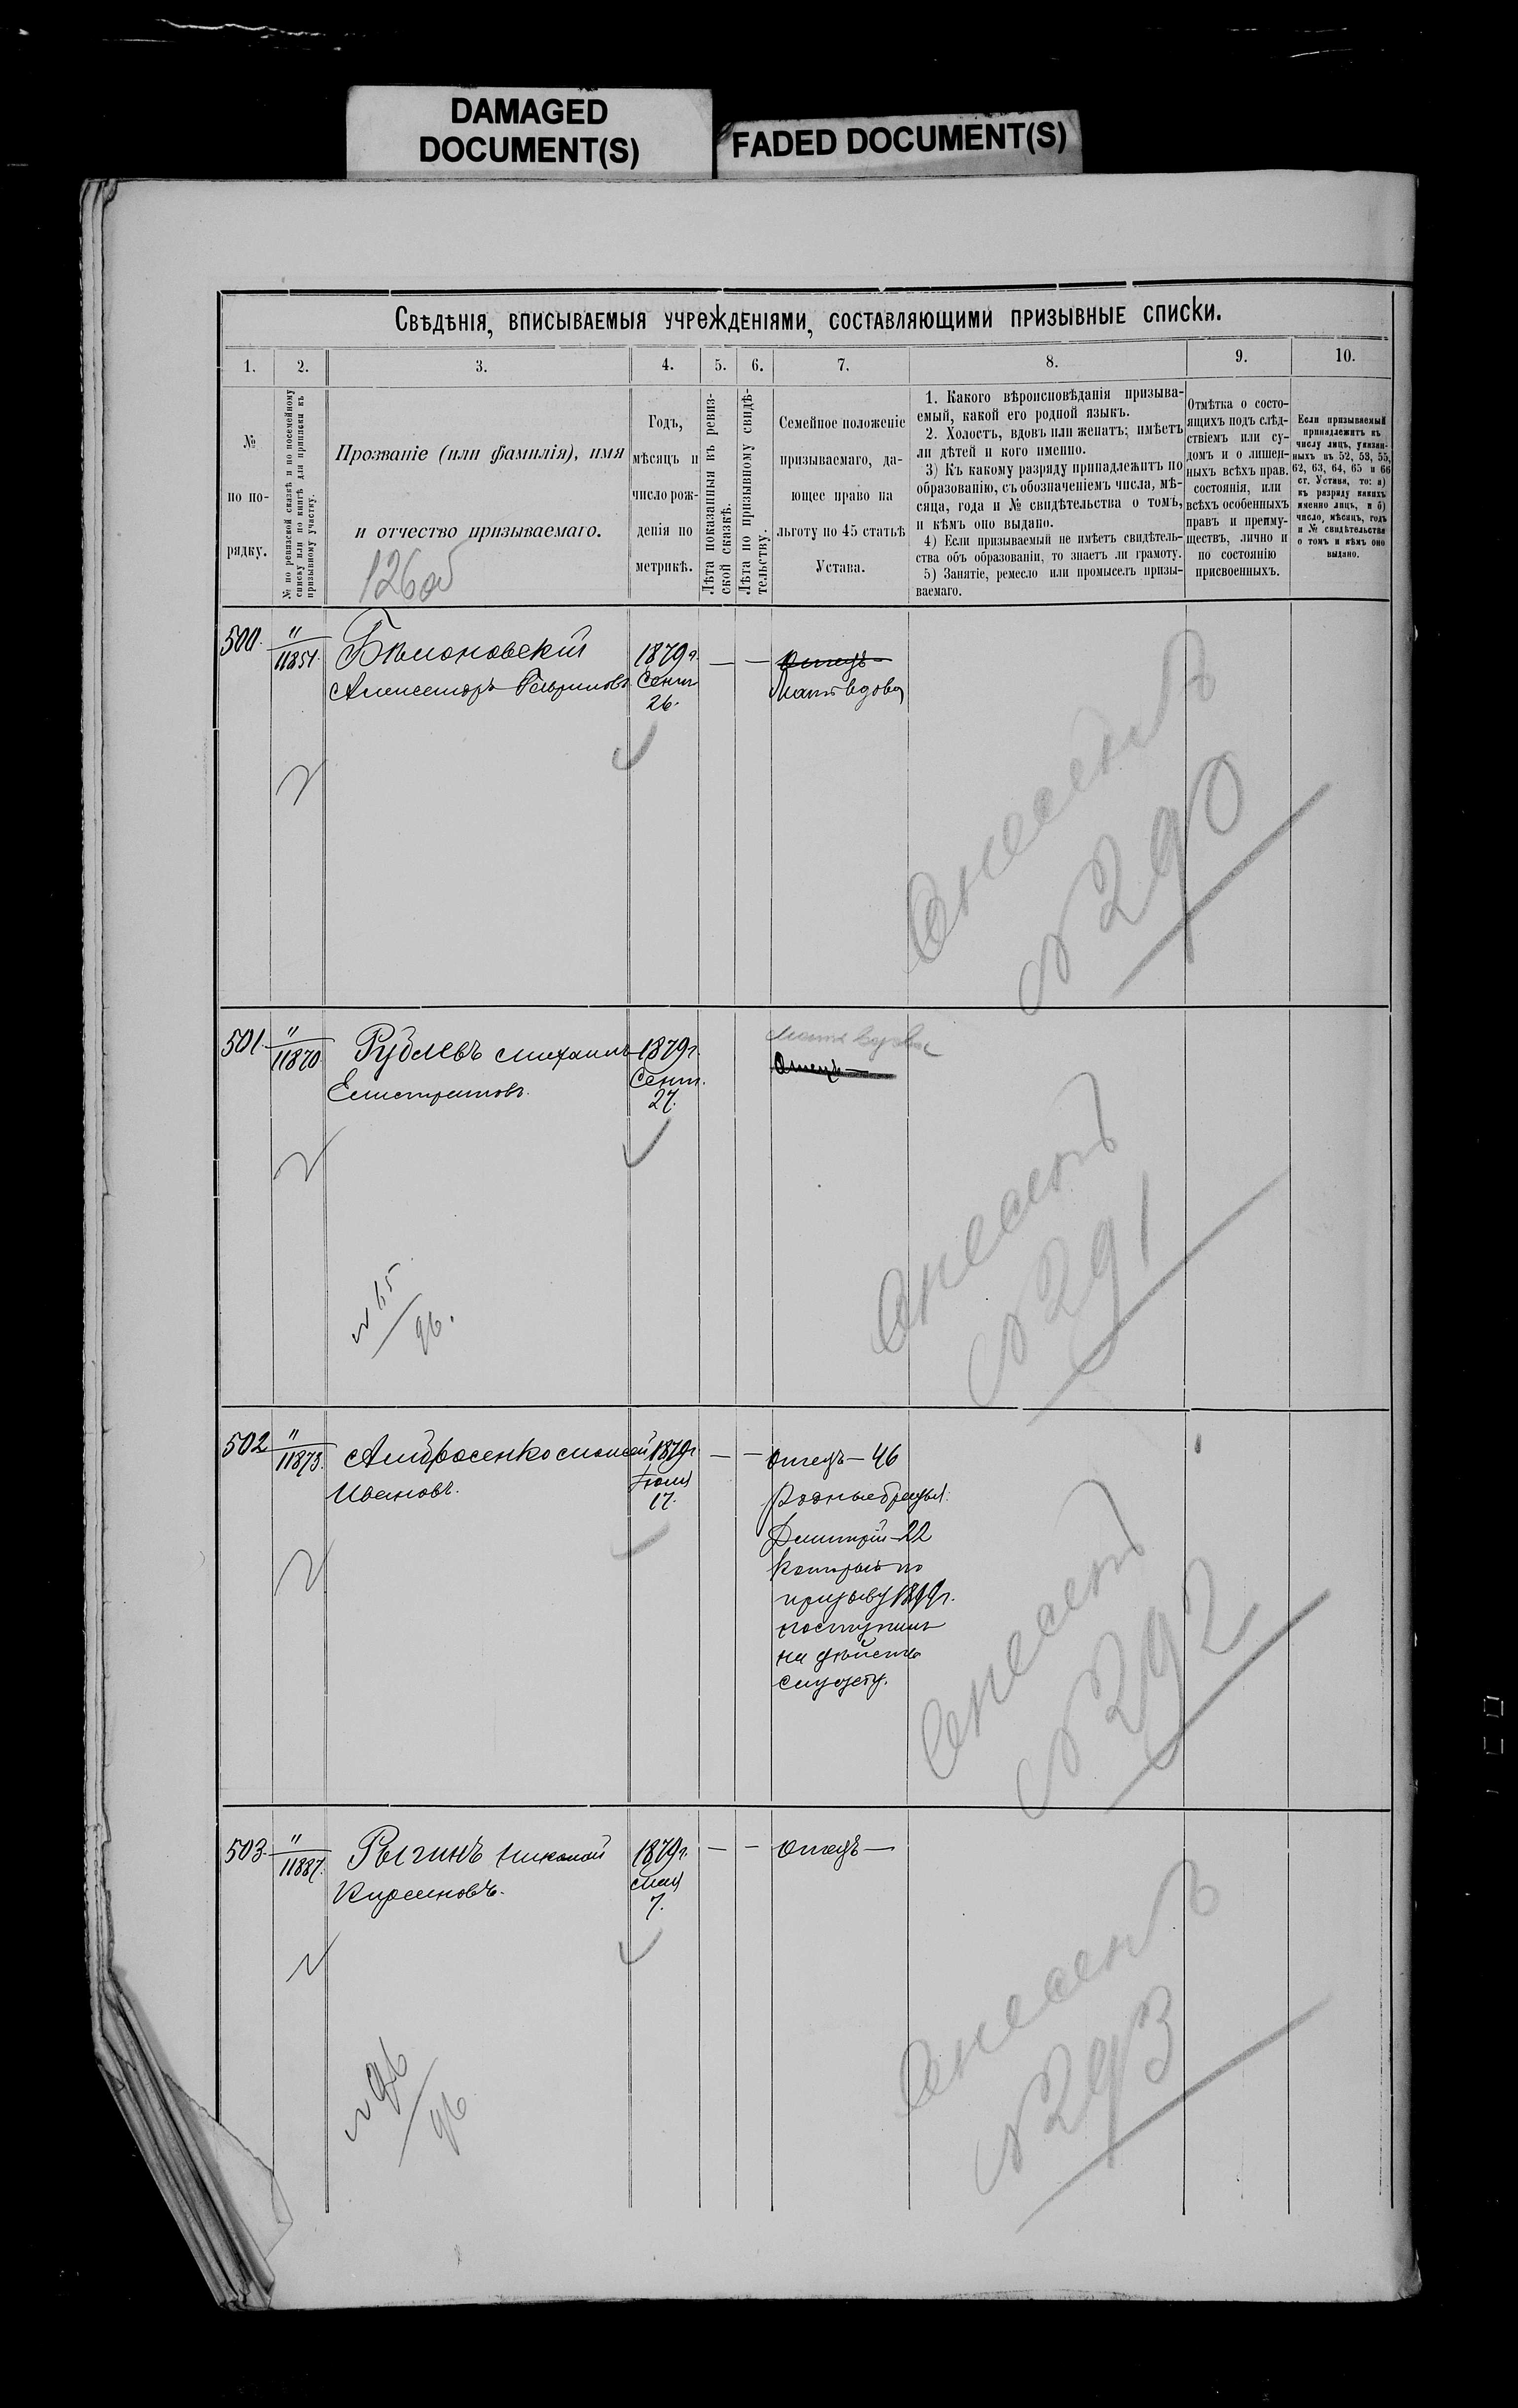 DAMAGED
DOCUMENT(S)
FADED DOCUMENT(S)
Свѣдѣнія, вписываемыя учрежденіями, составляющими призывные списки.
1. 2. 3. 4. 5. 6. 7. 8. 9. 10.
№
по по-
рядку.
№ по ревизской сказкѣ и по посемейному
списку или по книгѣ для приписки къ
призывному участку.
Прозваніе (или фамилія), имя
и отчество призываемаго.
126об
Годъ,
мѣсяцъ и
число рож-
денія по
метрикѣ.
Лѣта показанныя въ ревиз-
ской сказкѣ.
Лѣта по призывному свидѣ-
тельству.
Семейное положеніе
призываемаго, да-
ющее право на
льготу по 45 статьѣ
Устава.
1. Какого вѣроисповѣданія призыва-
емый, какой его родной языкъ.
2. Холостъ, вдовъ или женатъ; имѣетъ
ли дѣтей и кого именно.
3) Къ какому разряду принадлежитъ по
образованію, съ обозначеніемъ числа, мѣ-
сяца, года и № свидѣтельства о томъ,
и кѣмъ оно выдано.
4) Если призываемый не имѣетъ свидѣтель-
ства объ образованіи, то знаетъ ли грамоту.
5) Занятіе, ремесло или промыселъ призы-
ваемаго.
Отмѣтка о состо-
ящихъ подъ слѣд-
ствіемъ или су-
домъ и о лишен-
ныхъ всѣхъ прав.
состоянія, или
всѣхъ особенныхъ
правъ и преиму-
ществъ, лично и
по состоянію
присвоенныхъ.
Если призываемый
принадлежитъ къ
числу лицъ, указан-
ныхъ въ 52, 53, 55,
62, 63, 64, 65 и 66
ст. Устава, то: а)
къ разряду какихъ
именно лицъ, и б)
число, мѣсяцъ, годъ
и № свидѣтельства
о томъ и кѣмъ оно
выдано.
500. "
11851.
1879 г.
Сент
26.
— —
Отецъ —
Мать вдова
№ 290
501 "
11870
Рублевъ Михаилъ
Елистратовъ.
1879 г.
Сент.
27.
Мать вдова
Отецъ —
№ 291
№ 65
96.
502 "
11873.
Амбросенко Моисей
Ивановъ.
1879 г
Іюля
17.
— —
Отецъ — 46
Родные братья:
Дмитрій — 22
который по
призыву 1899 г.
поступилъ
на дѣйств
службу.
№ 292
503 "
11887.
Рыгинъ Николай
Кирсановъ.
1879 г.
Мая
7.
— —
Отецъ —
№ 293
№ 96
96